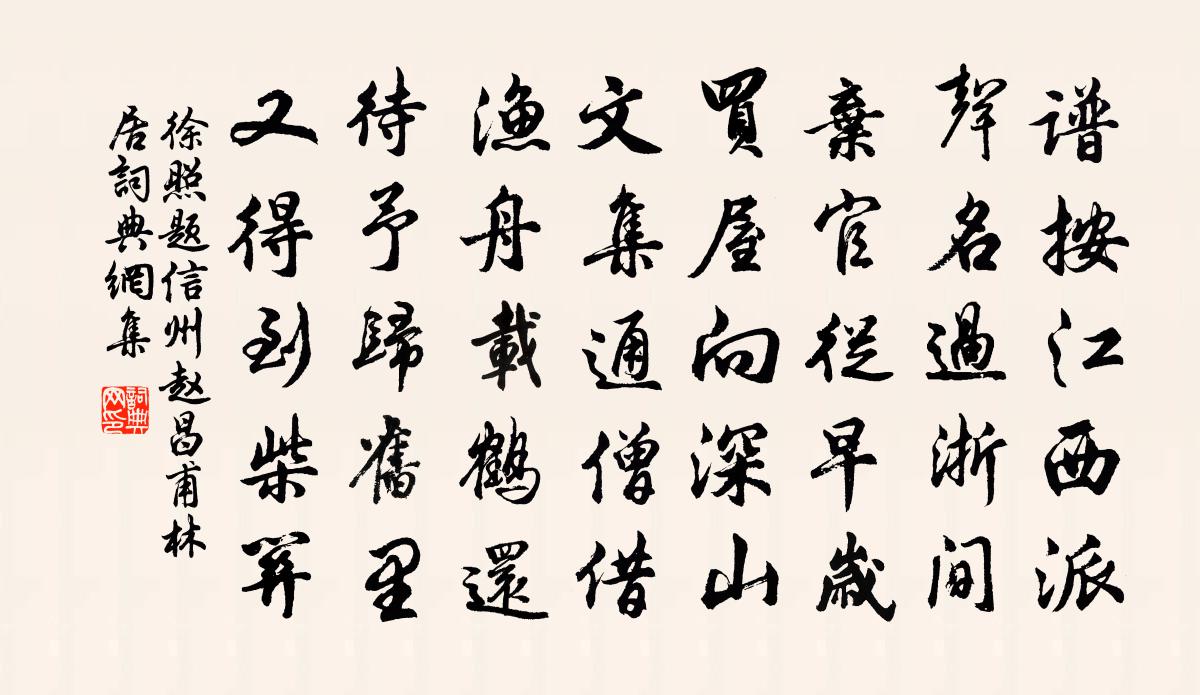 谱按江西派
聲名過浙间
棄官從早歲
買屋向深山
文集通僧借
漁舟載鶴還
待予歸舊里
又得到柴关
徐照题信州赵昌甫林
居詞典網集
詞典网印